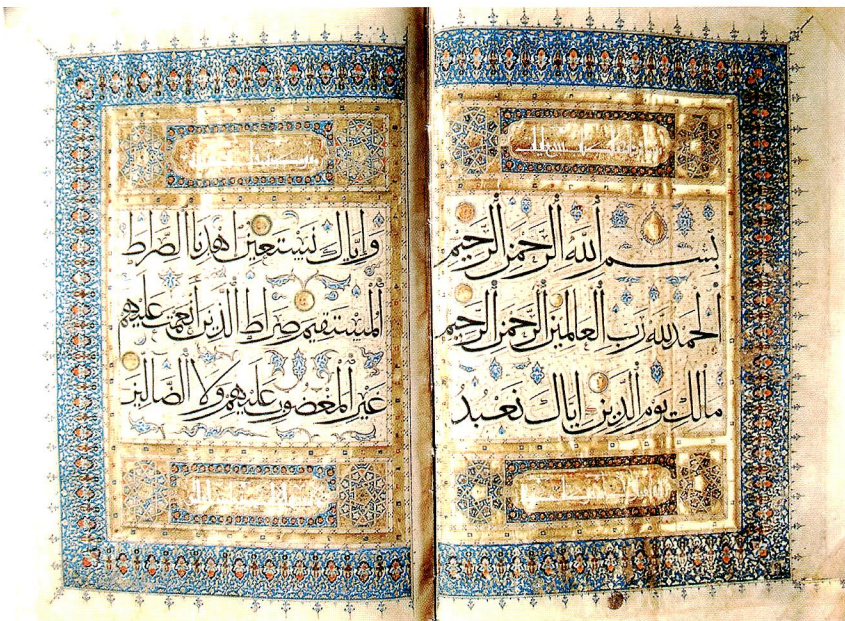 بِسْمِ اللهِ الرَّحْمٰنِ الرَّحِيْمِ
الْحَمْدُ لِلهِ رَبِّ الْعَالَمِيْنَ الرَّحْمٰنِ الرَّحِيْمِ
مَالِكِ يَوْمِ الدِّيْنِ اِيَّاكَ نَعْبُدُ
وَاِيَّاكَ نَسْتَعِيْنُ اهْدِنَا الصِّرَاطَ
الْمُسْتَقِيْمَ صِرَاطَ الَّذِيْنَ أَنْعَمْتَ عَلَيْهِمْ
غَيْرِ الْمَغْضُوْبِ عَلَيْهِمْ وَلَا الضَّالِّيْنَ